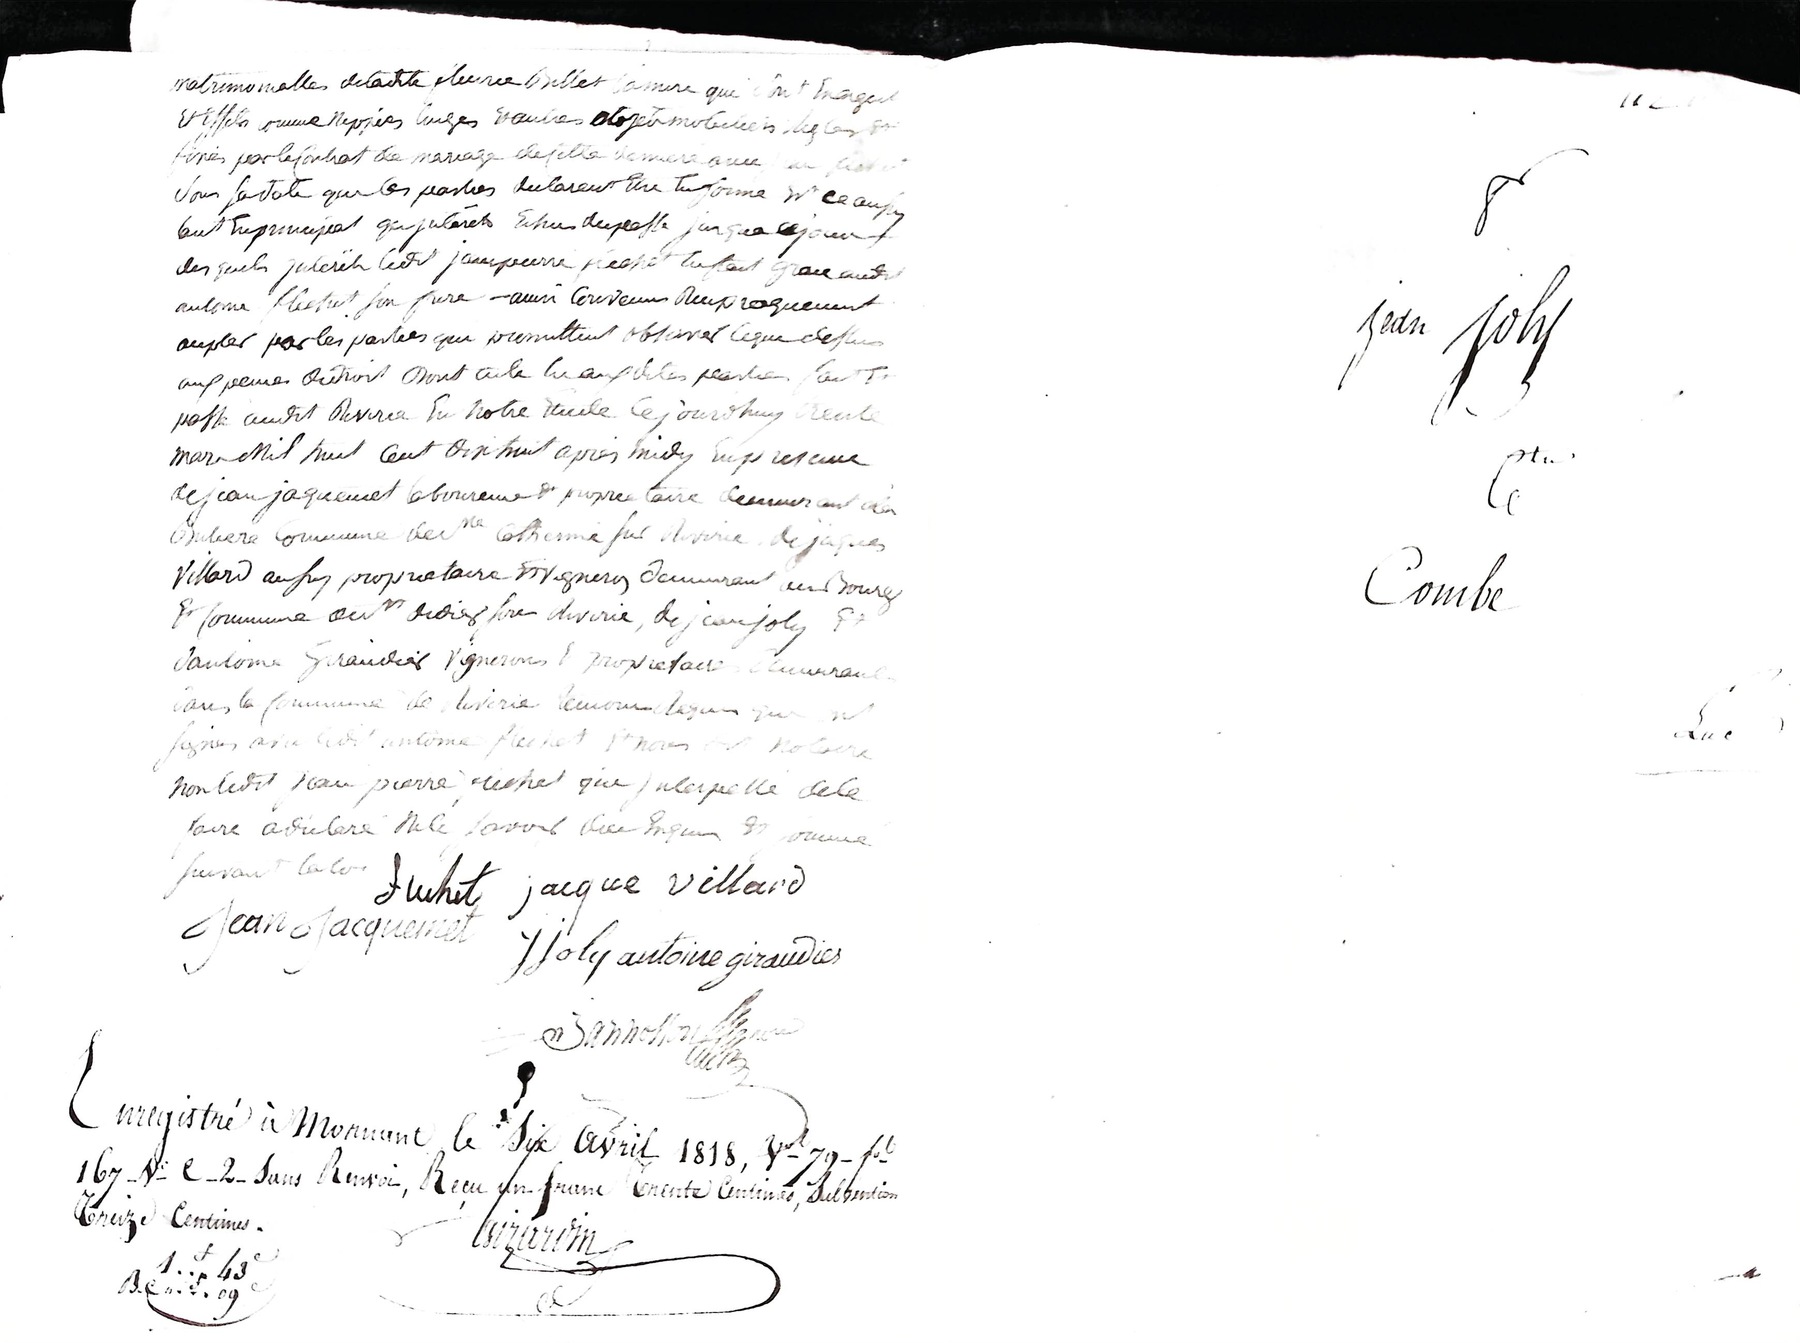 matrimonialles deladite fleurie Billet sa mere qui sont En argent
Et Effets comme nippies linges Et autres objets mobiliers reglés Et
fixés par le Contrat de mariage de cette derniere avec
sous sa date que les parties declarent Etre En forme Et ce aussy
tant En principal qu'jnterêts Echus du passé jusqu'a ce jour
des quels jnterêts ledit jean pierre flechet En fait Grace audit
antoine flechet son frere - ainsi Convenu Reciproquement
accepter par les parties qui promettent observer ce que dessus
aux peines de droit dont acte lu aux dites parties fait Et
passé audit Riverie En notre Etude Cejourd'huy trente
mars Mil huit Cent Dix huit après midy En presence
de jean jaquemet laboureur & proprietaire demeurant
Commune de Ste Catherine sur Riverie, de jaques
Villard aussy proprietaire Et Vigneron demeurant au Bourg
Et Commune de St didier sous Riverie, de jean joly Et
d'antoine Giraudier Vignerons & proprietaires demeurant
dans la Commune de Riverie temoins Requis qui ont
signés avec ledit antoine flechet Et nous dit Notaire
non ledit jean pierre flechet qui jnterpellé de le
faire a declaré Ne le savoir de ce Enquis Et sommé
suivant la loi
fluhet jacque villard
Jean Jacquemet
J Joly antoine giraudier
Enregistré à Mornant le Six Avril 1818, Vol 79 - fol
167 Vo C - 2 - Sans Renvoi, Reçu un franc Trente Centimes, Subvention
Treize Centimes.
Girardin
1f 43c
09c
8
jean joly
Ctre
Combe
Luc